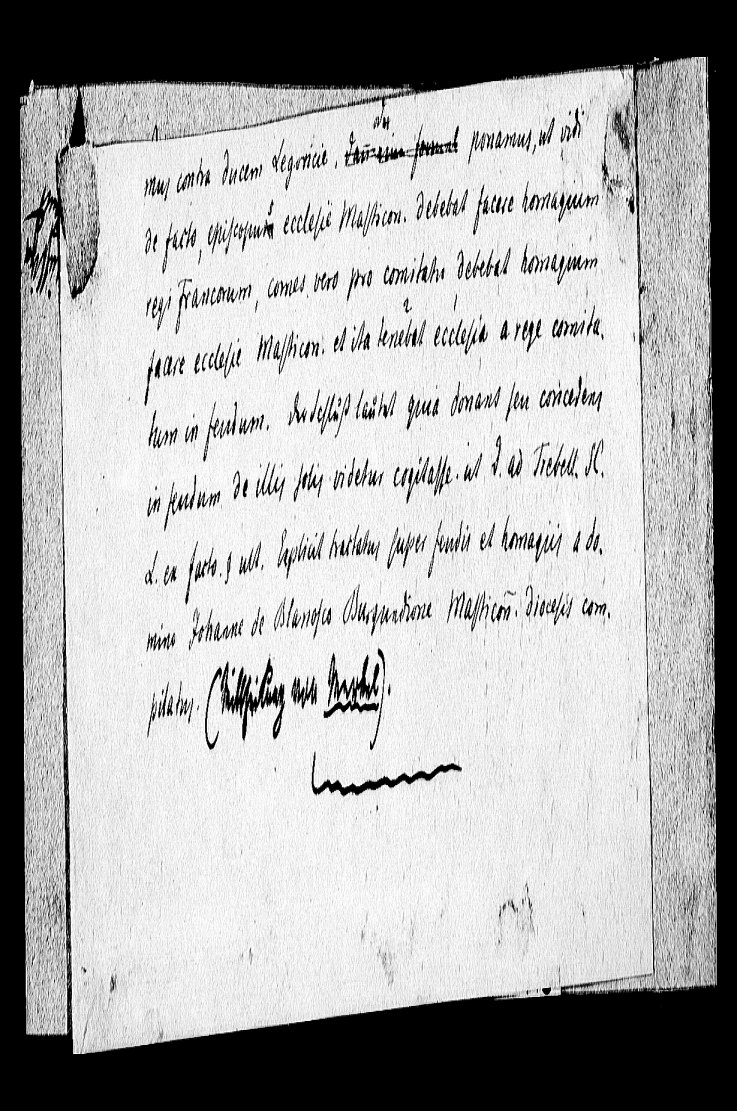 mus contra ducem Legoricie, ponamus, ut vidi
de facto, episcopum ecclesie Mastticon. debebat facere homagium
regi Francorum, comes vero pro comitatu debebat homagium
facere ecclesie Matticon. et ita tenebat ecclesia a rege comita.
tum in feudum. der Schluß lautet quia donans seu concedens
in feudum de illis solis videtur cogitasse. ut D. ad Trebell. SC.
L. ex facto. § ult. Explicit tractatus super feudis et homagiis a do.
mino Johanne de Blanosco Burgundione Masticoñ. diocesis com.
pilatus. (Mittheilung von Merkel).